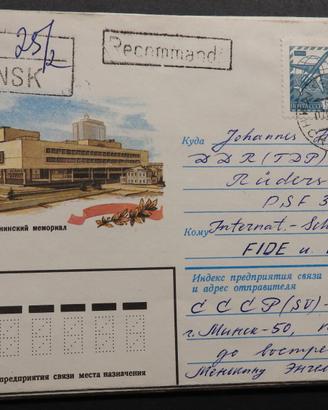 25/2
NSK
Recommandé
нинский мемориал
Куда Johannes
DDR (ГДР)
Rüders
PSF 3
Кому Internat.-Sch
FIDE u.
Индекс предприятия связи
и адрес отправителя
СССР (SU)-
г. Минск-50,
до востре
предприятия связи места назначения